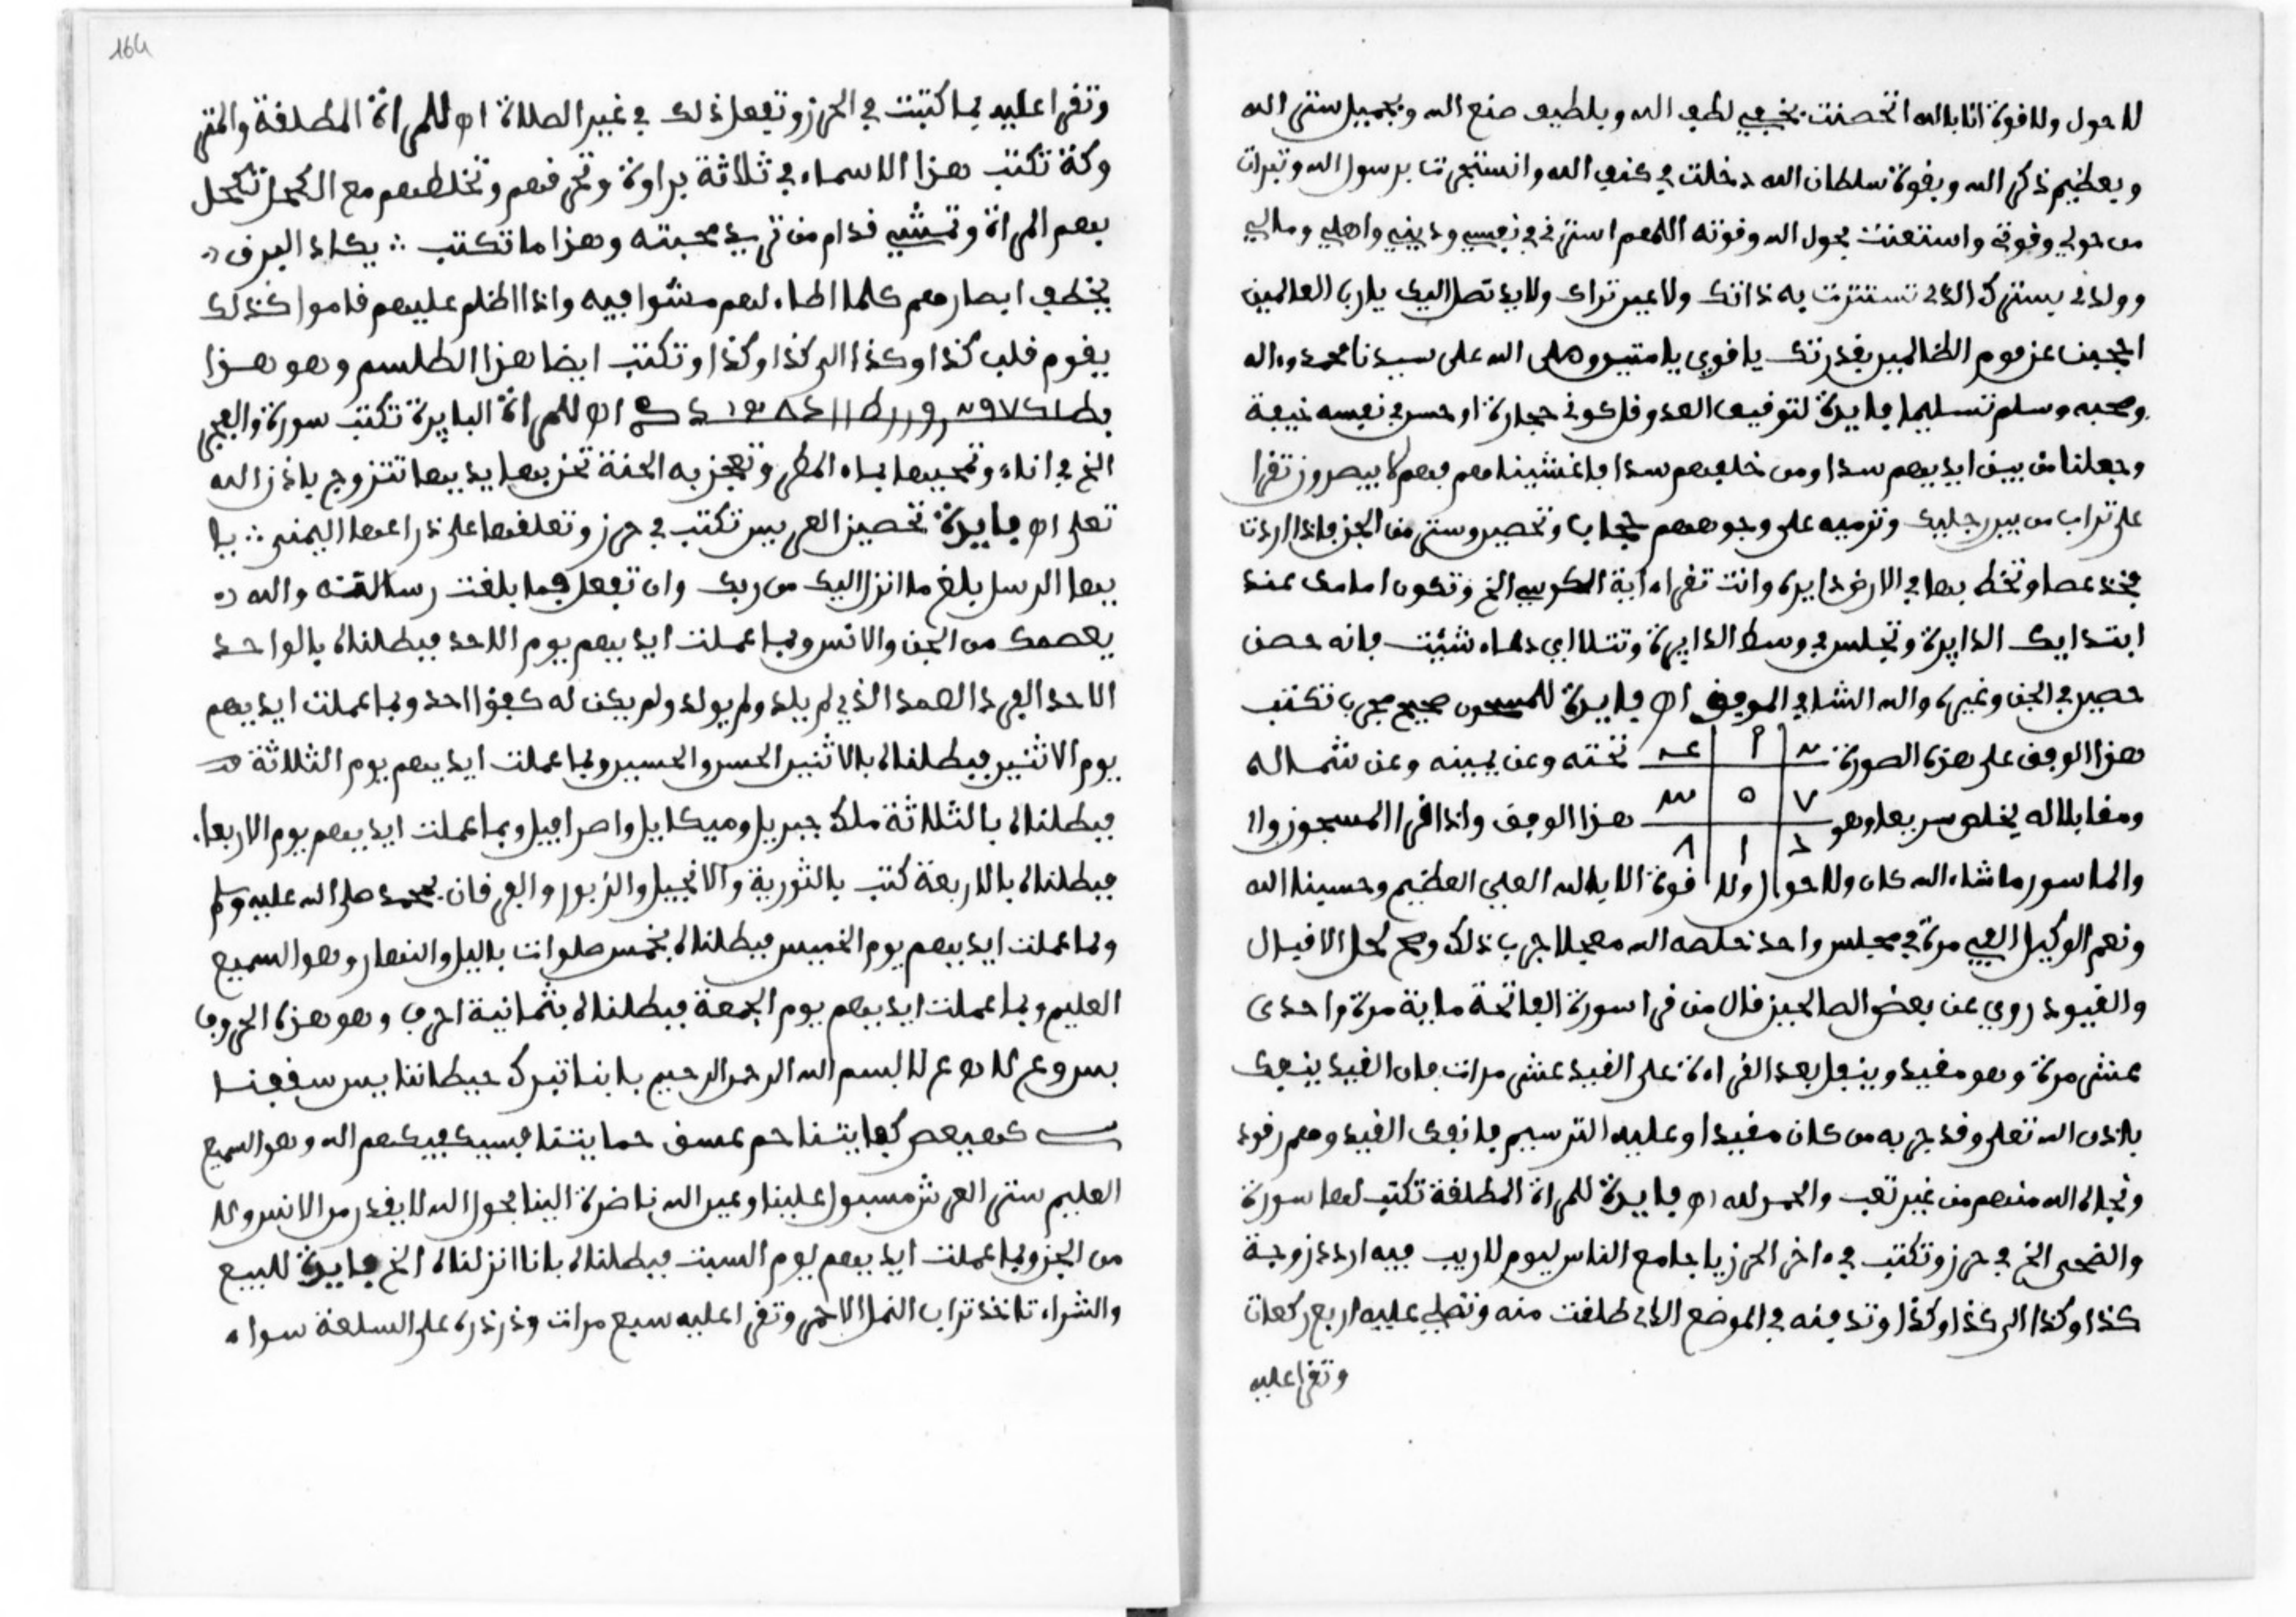 لا حول ولا قوة انا بالله اتحصنت بخفي لطف الله وبلطيف صنع الله وبجميل ستر الله
وبعظيم ذكر الله وبقوة سلطان الله دخلت في كنف الله واستجرت برسول الله وتبرات
من حولي وقوتي واستعنت بحول الله وقوته اللهم استرني في نفسي وديني واهلي ومالي
وولدي بسترك الذي تسترت به ذاتك ولا عين تراك ولا يد تصل اليك يا رب العالمين
احجبن عن قوم الظالمين بقدرتك يا قوي يا متين وصلى الله على سيدنا محمد واله
وصحبه وسلم تسليما فايدة لتوقيف العدو قل كونو حجارة او حس في نفسه خيفة
وجعلنا من بين ايديهم سدا ومن خلفهم سدا فاغشيناهم فهم لا يبصرون تقرا
على تراب من بين رجليك وترميه على وجوههم حجاب وتحصين وستر من الجن فاذا اردت
فخذ عصا وتخط بها في الارض دايرة وانت تقراء اية الكرسي الخ وتكون امامك عند
ابتدايك الدايرة وتجلس في وسط الدايرة وتتلا اي دعاء شيت فانه حصن
حصين في الجن وغيره والله الشافي الموفق اه فايدة للمسجون صحيح مجرب تكتب
هذا الوفق على هذه الصورة تحته وعن يمينه وعن شماله
ومقابلا له يخلص سريعا وهو هذا الوفق واذا قرا المسجون وا
والماسور ما شاء الله كان ولا حول ولا قوة الا بالله العلي العظيم وحسبنا الله
ونعم الوكيل الفي مرة في مجلس واحد خلصه الله معجلا جرب ذلك وصح لحل الاقبال
والقيود روي عن بعض الصالحين قال من قرا سورة الفاتحة ماية مرة واحدى
عشر مرة وهو مقيد وينفل بعد القراءة على القيد عشر مرات فان القيد ينفك
باذن الله تعلى وقد جرب به من كان مقيدا وعليه الترسيم فانفك القيد وهم رقود
ونجاه الله منهم من غير تعب والحمد لله اه فايدة للمراة المطلقة تكتب لها سورة
والضحى الخ في حرز وتكتب في ءاخر الحرز يا جامع الناس ليوم لا ريب فيه اردد زوجة
كذا وكذا الى كذا وكذا وتدفنه في الموضع الذي طلقت منه وتصلي عليه اربع ركعات
وتقرا عليه
164
وتقرا عليه بما كتبت في الحرز وتفعل ذلك في غير الصلاة اه للمراة المطلقة والمتر
وكة تكتب هذا الاسماء في ثلاثة براوة وتحرقهم وتخلطهم مع الكحل تكحل
بهم المراة وتمشي قدام من تريد محبته وهذا ما تكتب يكاد البرق
يخطف ابصارهم كلما اضاء لهم مشوا فيه واذا اظلم عليهم قاموا كذلك
يقوم قلب كذا وكذا الى كذا وكذا وتكتب ايضا هذا الطلسم وهو هذا
اه للمراة البايرة تكتب سورة والفجر
الخ في اناء وتمحيها بماء المطر وتعجن به الحنة تحز بها يديها تتزوج باذن الله
تعلى اه فايدة تحصين العريس تكتب في حرز وتعلقها على ذراعها اليمنى يا
يها الرسل بلغ ما انزل اليك من ربك وان تفعل فما بلغت رسالته والله
يعصمك من الجن والانس وبما عملت ايديهم يوم الاحد فبطلناه بالواحد
الاحد الفرد الصمد الذي لم يلد ولم يولد ولم يكن له كفؤا احد وبما عملت ايديهم
يوم الاثنين فبطلناه بالاثنين الحسن والحسين وبما عملت ايديهم يوم الثلاثة
فبطلناه بالثلاثة ملك جبريل وميكاييل واصرافيل وبما عملت ايديهم يوم الاربعا
فبطلناه بالاربعة كتب بالثورية والانجيل والزبور والفرقان بمحمد صلى الله عليه وسلم
وبما عملت ايديهم يوم الخميس فبطلناه بخمس صلوات باليل والنهار وهو السميع
العليم وبما عملت ايديهم يوم الجمعة فبطلناه بثمانية احرف وهو هذه الحروف
بسم الله الرحمن الرحيم بابنا تبرك حيطاننا يس سقفنا
كهيعص كفايتنا حم عسق حمايتنا فسيكفيكهم الله وهو السميع
العليم ستر العرش مسبول علينا وعين الله ناضرة الينا بحول الله لا يقدر من الانس ولا
من الجن وبما عملت ايديهم يوم السبت فبطلناه بانا انزلناه الخ فايدة للبيع
والشراء تاخذ تراب النمل الاحمر وتقرا عليه سبع مرات وذرذره على السلعة سواء